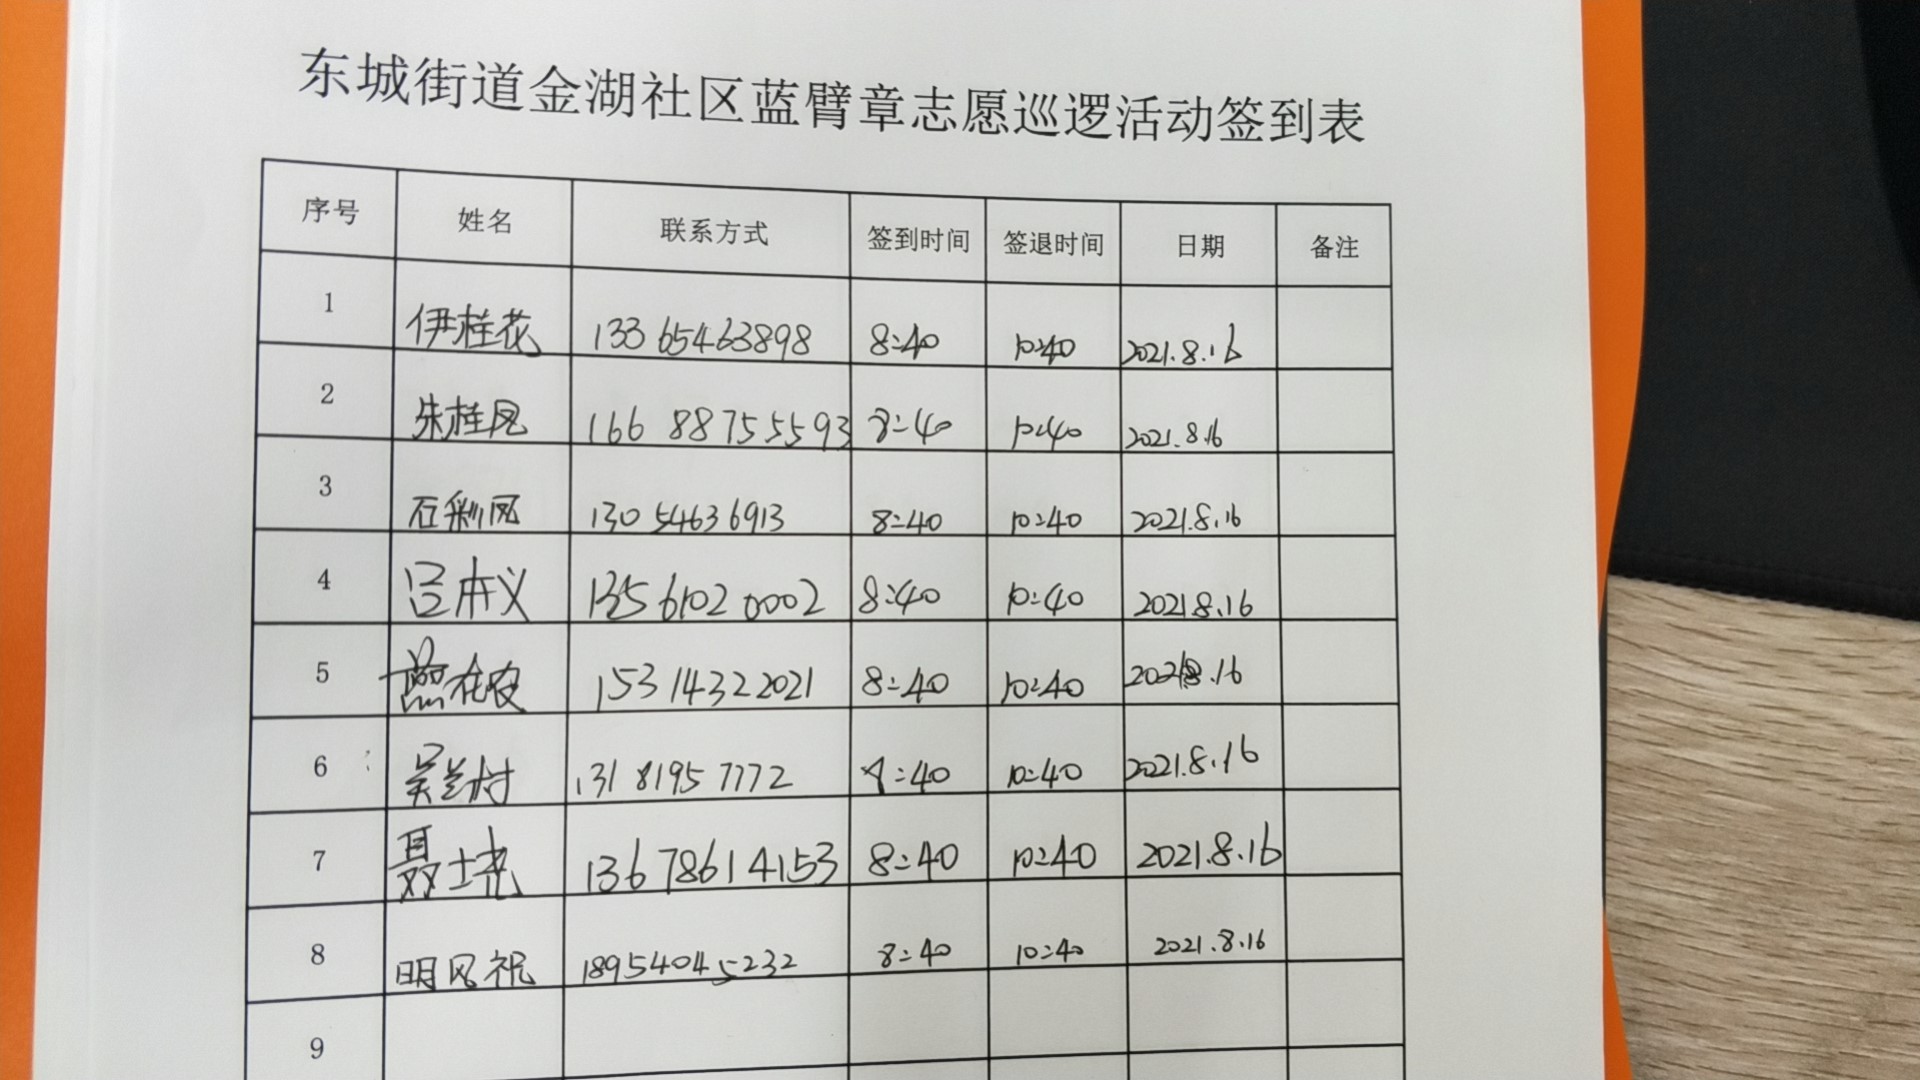 东城街道金湖社区蓝臂章志愿巡逻活动签到表
序号 姓名 联系方式 签到时间 签退时间 日期 备注
1 伊桂花 13365463898 8:40 10:40 2021.8.16
2 朱桂凤 16688755593 8:40 10:40 2021.8.16
3 石彩凤 13054636913 8:40 10:40 2021.8.16
4 吕本义 13561020002 8:40 10:40 2021.8.16
5 15314322021 8:40 10:40 2021.8.16
6 13181957772 8:40 10:40 2021.8.16
7 聂士尧 13678614153 8:40 10:40 2021.8.16
8 明风祝 18954045232 8:40 10:40 2021.8.16
9